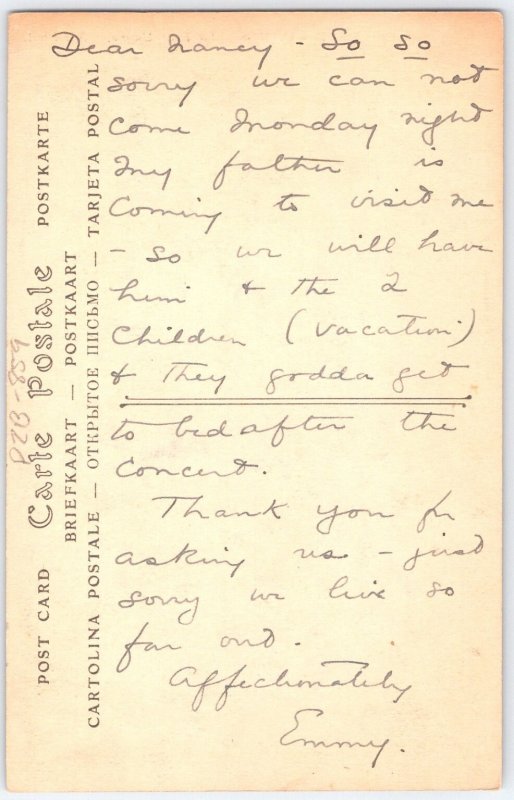 Dear Nancy - So So
sorry we can not
come Monday night
my father is
coming to visit me
- So we will have
him & the 2
children (vacation)
& they godda get
to bed after the
concert.
Thank you for
asking us - just
sorry we live so
far out.
Affectionately
Emmy.
POST CARD Carte Postale POSTKARTE
BRIEFKAART — POSTKAART
CARTOLINA POSTALE — ОТКРЫТОЕ ПИСЬМО — TARJETA POSTAL